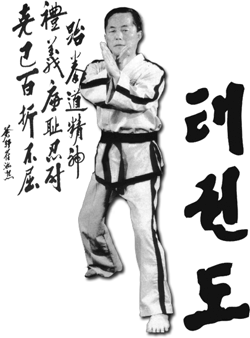 跆拳道精神
禮義廉恥忍耐
克己百折不屈
태권도